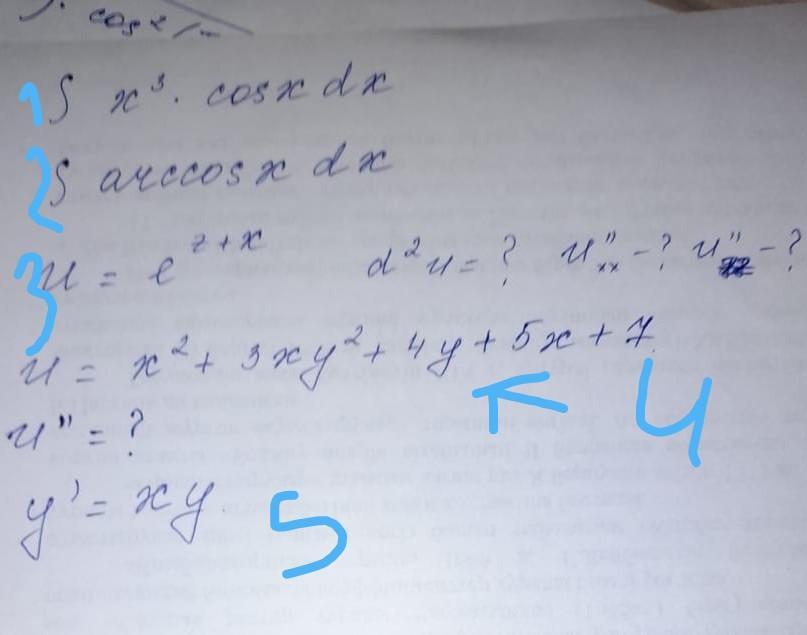 cos²
1 ∫ x³ · cosx dx
2 ∫ arccosx dx
3 u = e^{z+x} d²u = ? u''ₓₓ - ? u'' - ?
u = x² + 3xy² + 4y + 5x + 7 ← 4
u'' = ?
y' = xy 5